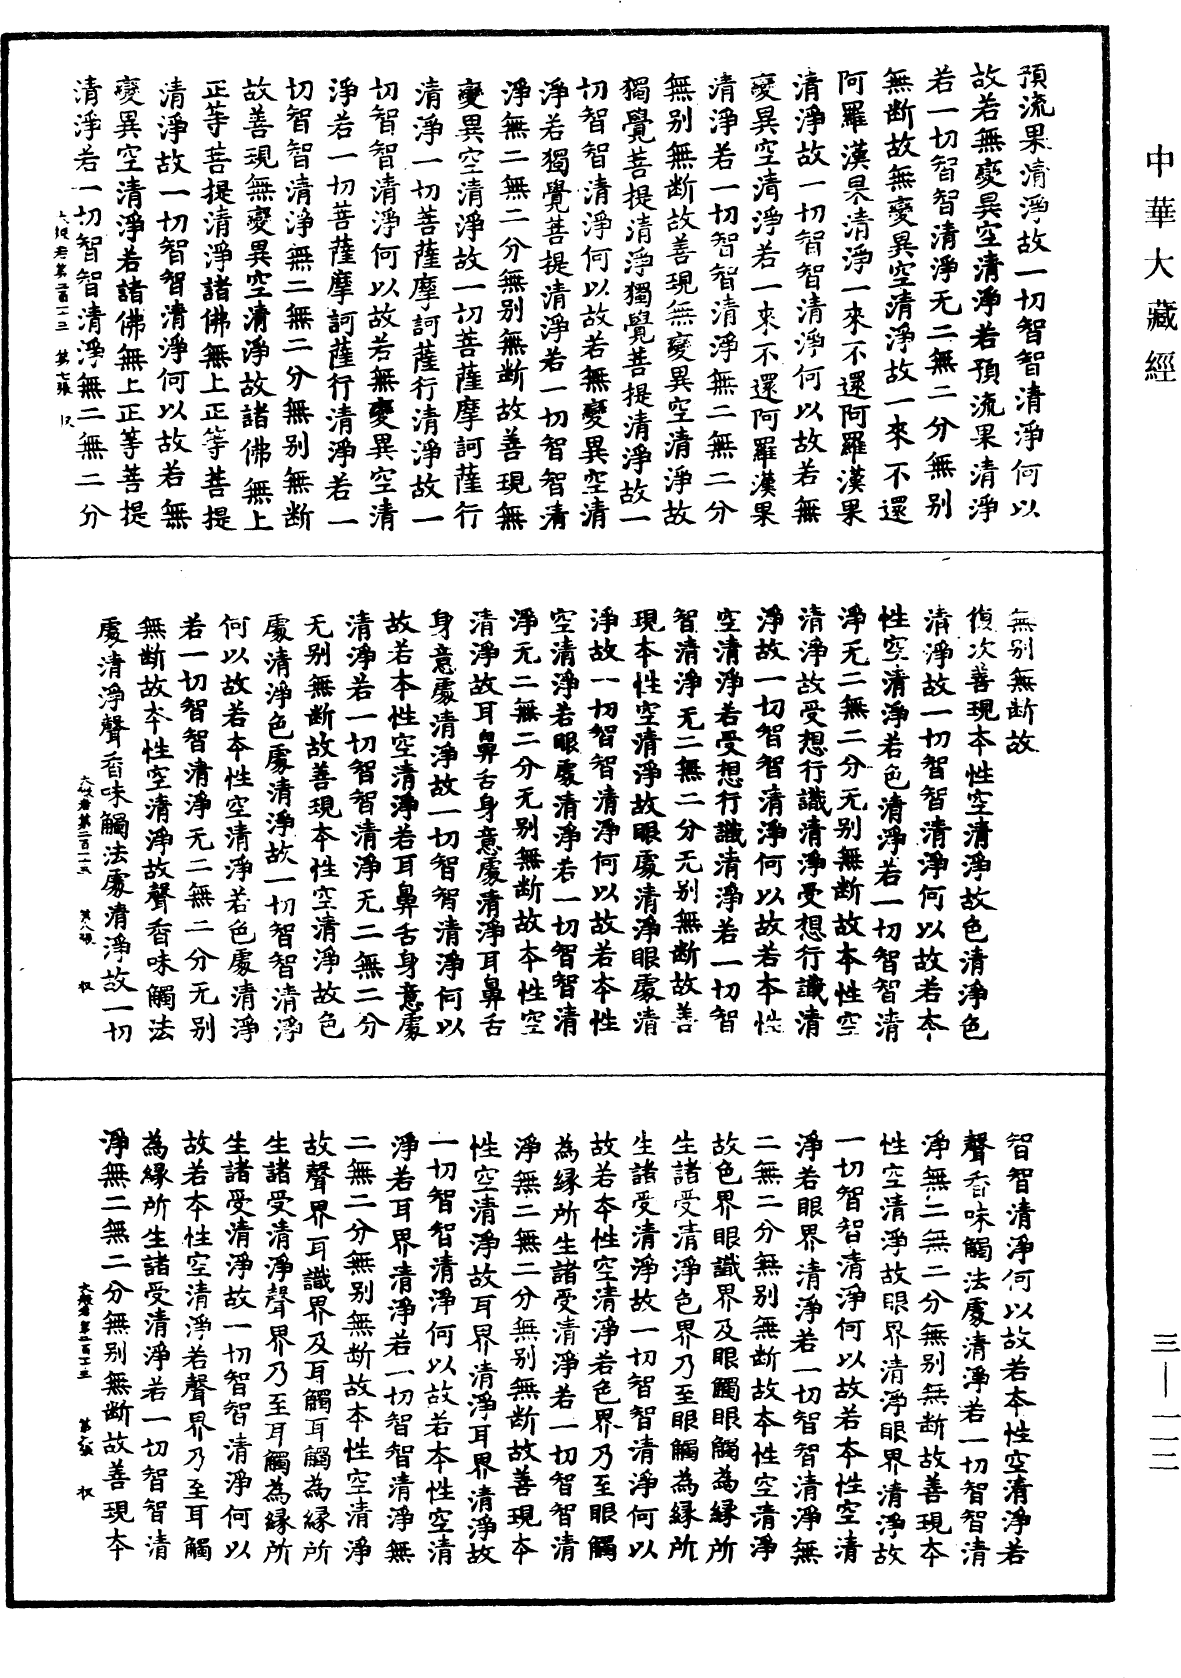 中華大藏經
預流果清淨故一切智智清淨何以
故若無變異空清淨若預流果清淨
若一切智智清淨无二無二分無別
無斷故無變異空清淨故一來不還
阿羅漢果清淨一來不還阿羅漢果
清淨故一切智智清淨何以故若無
變異空清淨若一來不還阿羅漢果
清淨若一切智智清淨無二無二分
無別無斷故善現無變異空清淨故
獨覺菩提清淨獨覺菩提清淨故一
切智智清淨何以故若無變異空清
淨若獨覺菩提清淨若一切智智清
淨無二無二分無別無斷故善現無
變異空清淨故一切菩薩摩訶薩行
清淨一切菩薩摩訶薩行清淨故一
切智智清淨何以故若無變異空清
淨若一切菩薩摩訶薩行清淨若一
切智智清淨無二無二分無別無斷
故善現無變異空清淨故諸佛無上
正等菩提清淨諸佛無上正等菩提
清淨故一切智智清淨何以故若無
變異空清淨若諸佛無上正等菩提
清淨若一切智智清淨無二無二分
大般若第二百一十三 第七張
無別無斷故
復次善現本性空清淨故色清淨色
清淨故一切智智清淨何以故若本
性空清淨若色清淨若一切智智清
淨无二無二分无別無斷故本性空
清淨故受想行識清淨受想行識清
淨故一切智智清淨何以故若本性
空清淨若受想行識清淨若一切智
智清淨无二無二分无別無斷故善
現本性空清淨故眼處清淨眼處清
淨故一切智智清淨何以故若本性
空清淨若眼處清淨若一切智智清
淨无二無二分无別無斷故本性空
清淨故耳鼻舌身意處清淨耳鼻舌
身意處清淨故一切智智清淨何以
故若本性空清淨若耳鼻舌身意處
清淨若一切智智清淨无二無二分
无別無斷故善現本性空清淨故色
處清淨色處清淨故一切智智清淨
何以故若本性空清淨若色處清淨
若一切智智清淨无二無二分无別
無斷故本性空清淨故聲香味觸法
處清淨聲香味觸法處清淨故一切
大般若第二百一十三 第八張 叔
智智清淨何以故若本性空清淨若
聲香味觸法處清淨若一切智智清
淨無二無二分無別無斷故善現本
性空清淨故眼界清淨眼界清淨故
一切智智清淨何以故若本性空清
淨若眼界清淨若一切智智清淨無
二無二分無別無斷故本性空清淨
故色界眼識界及眼觸眼觸為緣所
生諸受清淨色界乃至眼觸為緣所
生諸受清淨故一切智智清淨何以
故若本性空清淨若色界乃至眼觸
為緣所生諸受清淨若一切智智清
淨無二無二分無別無斷故善現本
性空清淨故耳界清淨耳界清淨故
一切智智清淨何以故若本性空清
淨若耳界清淨若一切智智清淨無
二無二分無別無斷故本性空清淨
故聲界耳識界及耳觸耳觸為緣所
生諸受清淨聲界乃至耳觸為緣所
生諸受清淨故一切智智清淨何以
故若本性空清淨若聲界乃至耳觸
為緣所生諸受清淨若一切智智清
淨無二無二分無別無斷故善現本
大般若第二百一十三 第九張 叔
三—一一二